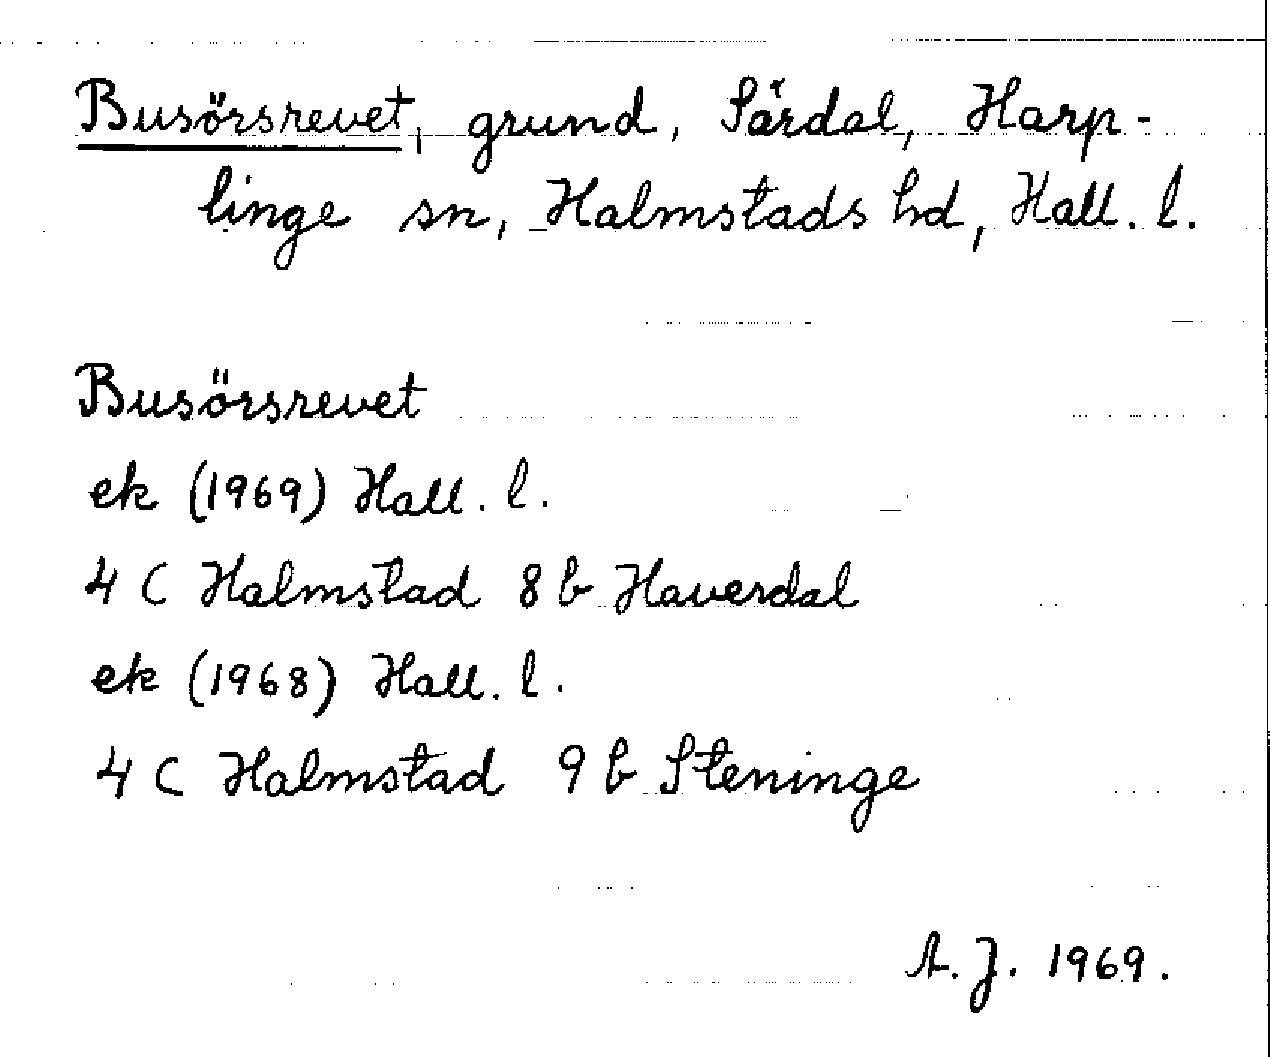 Busörsrevet, grund, Särdal, Harp-
linge sn, Halmstads hd, Hall. l.
Busörsrevet
ek (1969) Hall. l.
4 C Halmstad 8 b Haverdal
ek (1968) Hall. l.
4 C Halmstad 9 b Steninge
A. J. 1969.